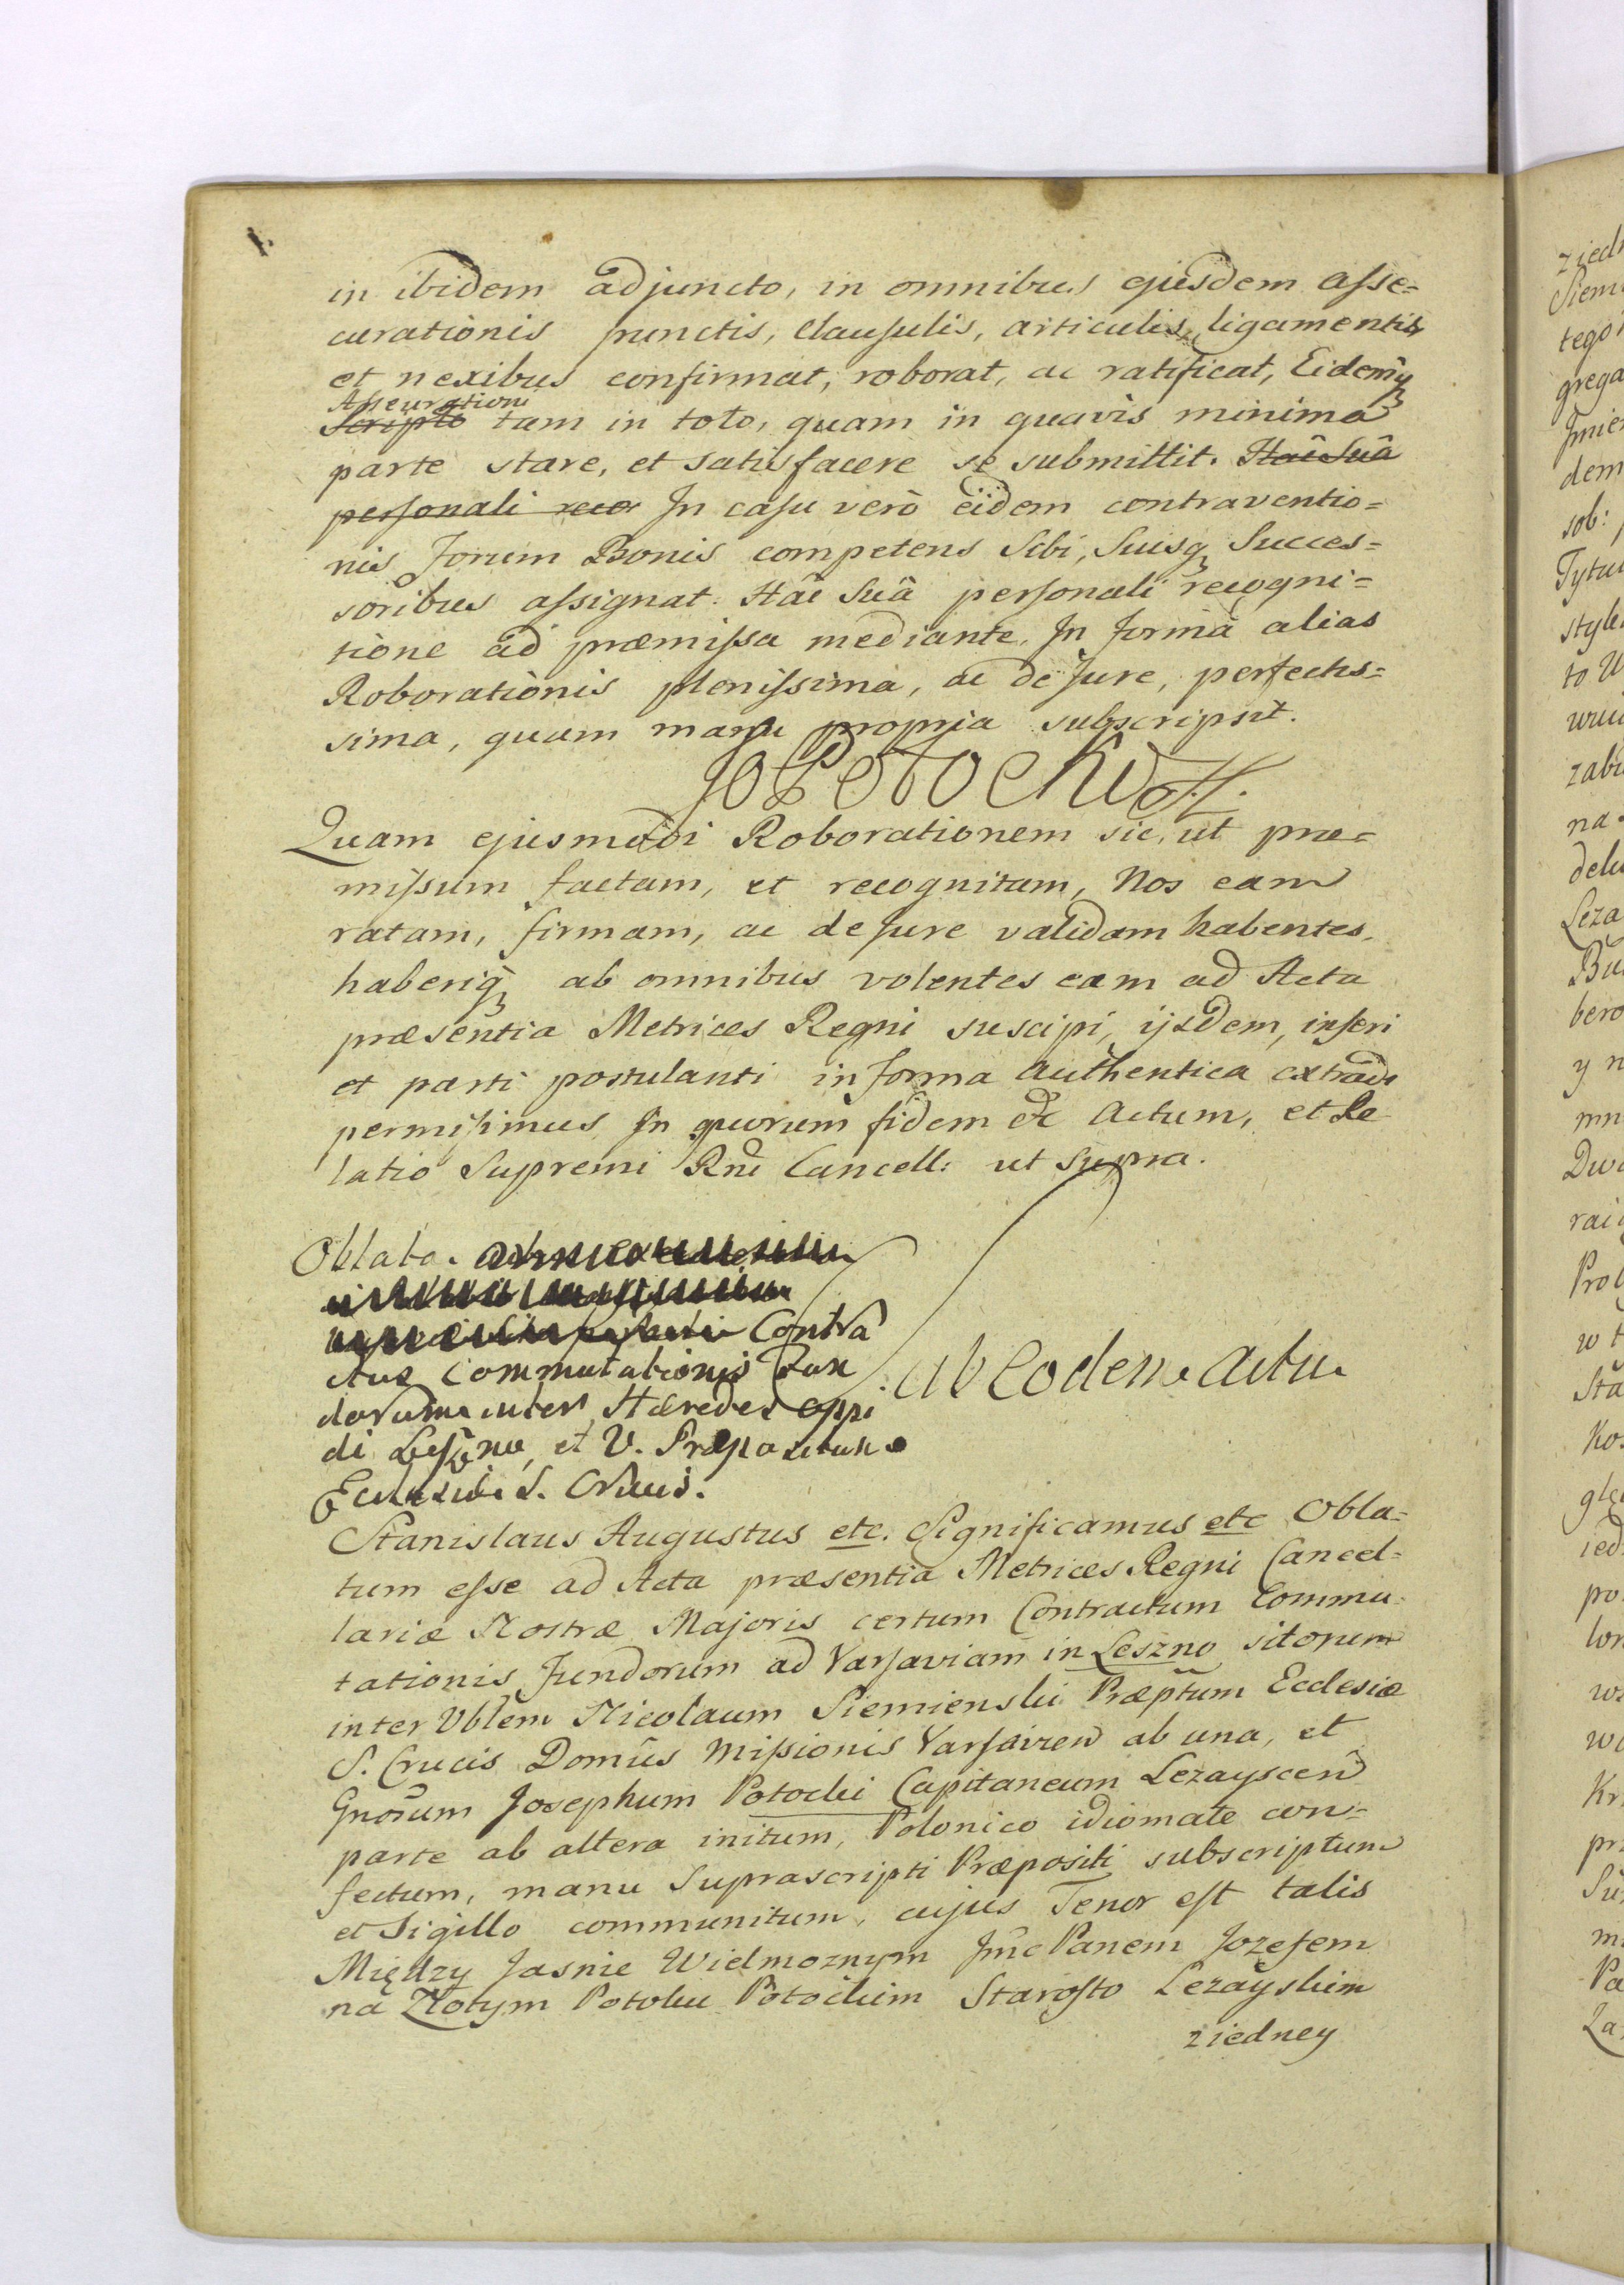 in ibidem adjuncto, in omnibus ejusdem asse=
curationis punctis, clausulis, articulis, ligamentis
et nexibus confirmat, roborat, ac ratificat, Eidemq
Assecurationi
Scripto tam in toto, quam in quavis minima
parte stare, et satisfacere se submittit. Hac Suâ
personali reco In casu verò eidem contraventio=
nis Forum Bonis competens Sibi, Suisq Succes=
soribus assignat. Hâc Suâ personali recogni=
tione ad præmissa mediante. In formâ alias
Roborationis plenissima, ac de Jure, perfectis=
sima, quam manu propria subscripsit.
JoPotocki
Quam ejusmodi Roborationem sic, ut præ=
missum factam, et recognitam, Nos eam
ratam, firmam, ac de Jure validam habentes,
haberiq ab omnibus volentes eam ad Acta
præsentia Metrices Regni suscipi, ijsdem, inseri
et parti postulanti in forma authentica extradi
permisimus. In quorum fidem etc Actum, et Re
latio Supremi Rni Cancell: ut Supra.
Oblata.
Contra
ctus Commutationis Fun
dorum inter Hæredes oppi
di Leszno, et V. Præpositum
Ecclesiæ S. Crucis.
ab Eodem Actu
Stanislaus Augustus etc. Significamus etc Obla=
tum esse ad Acta præsentia Metrices Regni Cancel=
lariæ Nostræ Majoris certum Contractum Commu=
tationis Fundorum ad Varsaviam in Leszno sitorum
inter Vblem Nicolaum Siemienski Præptum Ecclesiæ
S. Crucis Domûs Missionis Varsavien ab una, et
Gnosum Josephum Potocki Capitaneum Lezayscen
parte ab altera initum, Polonico idiomate con=
fectum, manu Suprascripti Præpositi subscriptum
et Sigillo communitum, cujus Tenor est talis
Między Jasnie Wielmoznym Jmc Panem Jozefem
na Złotym Potoku Potockim Starosto Lezayskim
ziedney